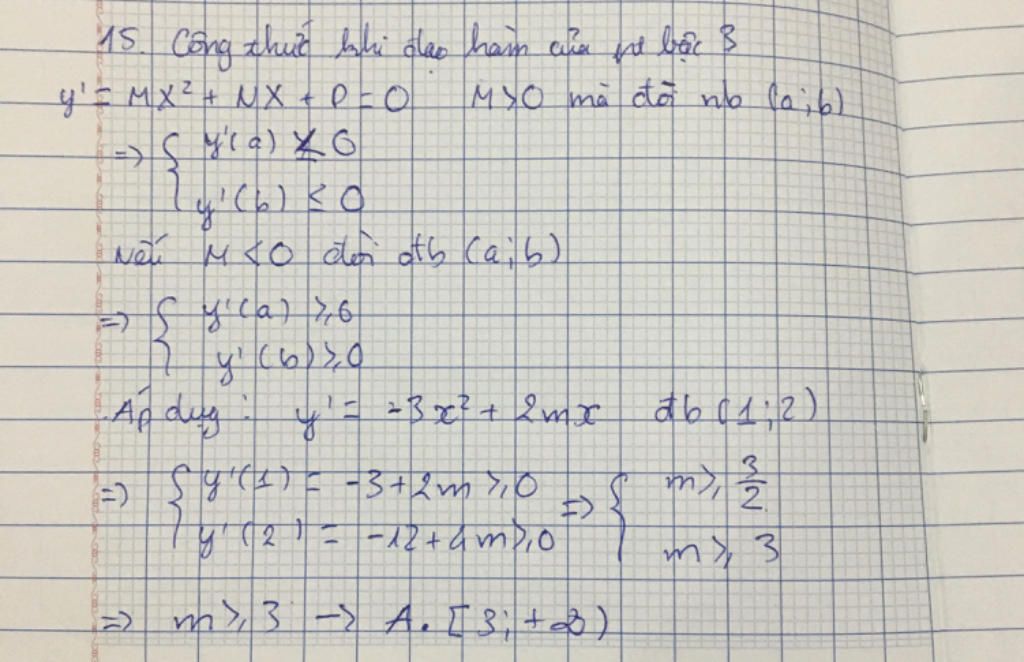 15. Công thức khi đạo hàm của pt bậc 3
y' = Mx² + Nx + P = 0 M > 0 mà đòi nb (a;b)
=> { y'(a) ≤ 0
y'(b) ≤ 0
Nếu M < 0 đòi đb (a;b)
=> { y'(a) ≥ 0
y'(b) ≥ 0
Áp dụg : y' = -3x² + 2mx đb (1;2)
=> { y'(1) = -3 + 2m ≥ 0 => { m ≥ 3/2
y'(2) = -12 + 4m ≥ 0 m ≥ 3
=> m ≥ 3 -> A. [3; +∞)